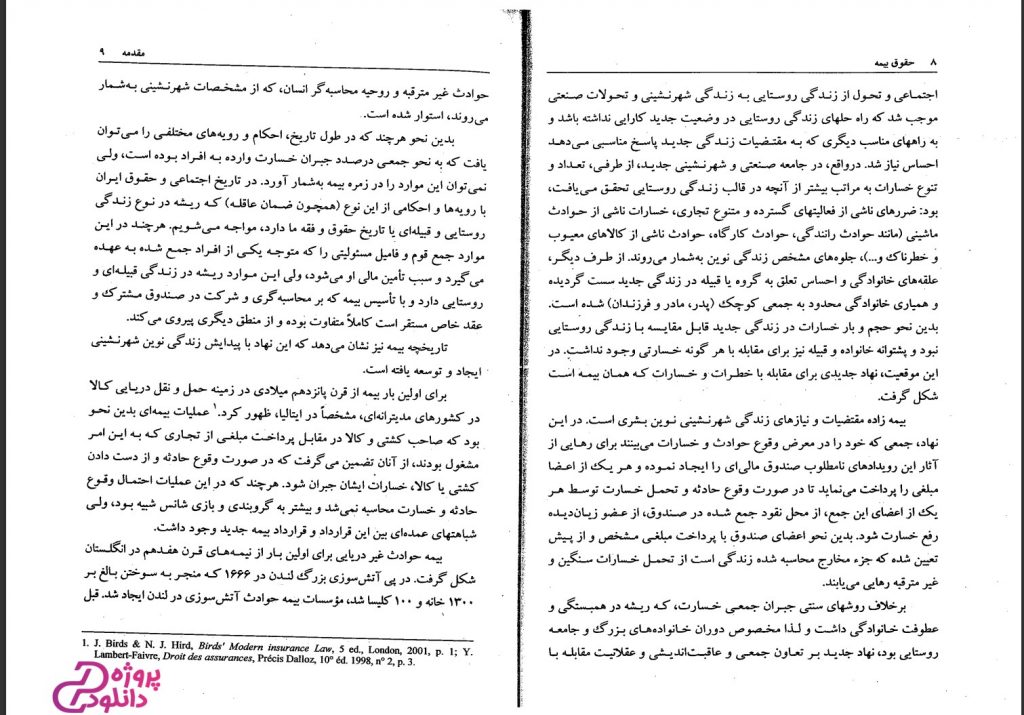 ۸ حقوق بیمه
اجتماعی و تحول از زندگی روستایی به زندگی شهرنشینی و تحولات صنعتی
موجب شد که راه حلهای زندگی روستایی در وضعیت جدید کارایی نداشته باشد و
به راههای مناسب دیگری که به مقتضیات زندگی جدید پاسخ مناسبی می‌دهد
احساس نیاز شد. درواقع، در جامعه صنعتی و شهرنشینی جدید، از طرفی، تعداد و
تنوع خسارات به مراتب بیشتر از آنچه در قالب زندگی روستایی تحقق می‌یافت،
بود: ضررهای ناشی از فعالیتهای گسترده و متنوع تجاری، خسارات ناشی از حوادث
ماشینی (مانند حوادث رانندگی، حوادث کارگاه، حوادث ناشی از کالاهای معیوب
و خطرناک و...)، جلوه‌های مشخص زندگی نوین به‌شمار می‌روند. از طرف دیگر،
علقه‌های خانوادگی و احساس تعلق به گروه یا قبیله در زندگی جدید سست گردیده
و همیاری خانوادگی محدود به جمعی کوچک (پدر، مادر و فرزندان) شده است.
بدین نحو حجم و بار خسارات در زندگی جدید قابل مقایسه با زندگی روستایی
نبود و پشتوانه خانواده و قبیله نیز برای مقابله با هر گونه خسارتی وجود نداشت. در
این موقعیت، نهاد جدیدی برای مقابله با خطرات و خسارات که همان بیمه است
شکل گرفت.
بیمه زاده مقتضیات و نیازهای زندگی شهرنشینی نوین بشری است. در این
نهاد، جمعی که خود را در معرض وقوع حوادث و خسارات می‌بینند برای رهایی از
آثار این رویدادهای نامطلوب صندوق مالی‌ای را ایجاد نموده و هر یک از اعضا
مبلغی را پرداخت می‌نماید تا در صورت وقوع حادثه و تحمل خسارت توسط هر
یک از اعضای این جمع، از محل نقود جمع شده در صندوق، از عضو زیان‌دیده
رفع خسارت شود. بدین نحو اعضای صندوق با پرداخت مبلغی مشخص و از پیش
تعیین شده که جزء مخارج محاسبه شده زندگی است از تحمل خسارات سنگین و
غیر مترقبه رهایی می‌یابند.
برخلاف روشهای سنتی جبران جمعی خسارت، که ریشه در همبستگی و
عطوفت خانوادگی داشت و لذا مخصوص دوران خانواده‌های بزرگ و جامعه
روستایی بود، نهاد جدید بر تعاون جمعی و عاقبت‌اندیشی و عقلانیت مقابله با
مقدمه ۹
حوادث غیر مترقبه و روحیه محاسبه‌گر انسان، که از مشخصات شهرنشینی به‌شمار
می‌روند، استوار شده است.
بدین نحو هرچند که در طول تاریخ، احکام و رویه‌های مختلفی را می‌توان
یافت که به نحو جمعی درصدد جبران خسارت وارده به افراد بوده است، ولی
نمی‌توان این موارد را در زمره بیمه به‌شمار آورد. در تاریخ اجتماعی و حقوق ایران
با رویه‌ها و احکامی از این نوع (همچون ضمان عاقله) که ریشه در نوع زندگی
روستایی و قبیله‌ای یا تاریخ حقوق و فقه ما دارد، مواجه می‌شویم. هرچند در این
موارد جمع قوم و فامیل مسئولیتی را که متوجه یکی از افراد جمع شده به عهده
می‌گیرد و سبب تأمین مالی او می‌شود، ولی این موارد ریشه در زندگی قبیله‌ای و
روستایی دارد و با تأسیس بیمه که بر محاسبه‌گری و شرکت در صندوق مشترک و
عقد خاص مستقر است کاملاً متفاوت بوده و از منطق دیگری پیروی می‌کند.
تاریخچه بیمه نیز نشان می‌دهد که این نهاد با پیدایش زندگی نوین شهرنشینی
ایجاد و توسعه یافته است.
برای اولین بار بیمه از قرن پانزدهم میلادی در زمینه حمل و نقل دریایی کالا
در کشورهای مدیترانه‌ای، مشخصاً در ایتالیا، ظهور کرد.۱ عملیات بیمه‌ای بدین نحو
بود که صاحب کشتی و کالا در مقابل پرداخت مبلغی از تجاری که به این امر
مشغول بودند، از آنان تضمین می‌گرفت که در صورت وقوع حادثه و از دست دادن
کشتی یا کالا، خسارات ایشان جبران شود. هرچند که در این عملیات احتمال وقوع
حادثه و خسارت محاسبه نمی‌شد و بیشتر به گروبندی و بازی شانس شبیه بود، ولی
شباهتهای عمده‌ای بین این قرارداد و قرارداد بیمه جدید وجود داشت.
بیمه حوادث غیر دریایی برای اولین بار از نیمه‌های قرن هفدهم در انگلستان
شکل گرفت. در پی آتش‌سوزی بزرگ لندن در ۱۶۶۶ که منجر به سوختن بالغ بر
۱۳۰۰ خانه و ۱۰۰ کلیسا شد، مؤسسات بیمه حوادث آتش‌سوزی در لندن ایجاد شد. قبل
1. J. Birds & N. J. Hird, Birds' Modern insurance Law, 5 ed., London, 2001, p. 1; Y.
Lambert-Faivre, Droit des assurances, Précis Dalloz, 10° éd. 1998, n° 2, p. 3.
پروژه
دانلود